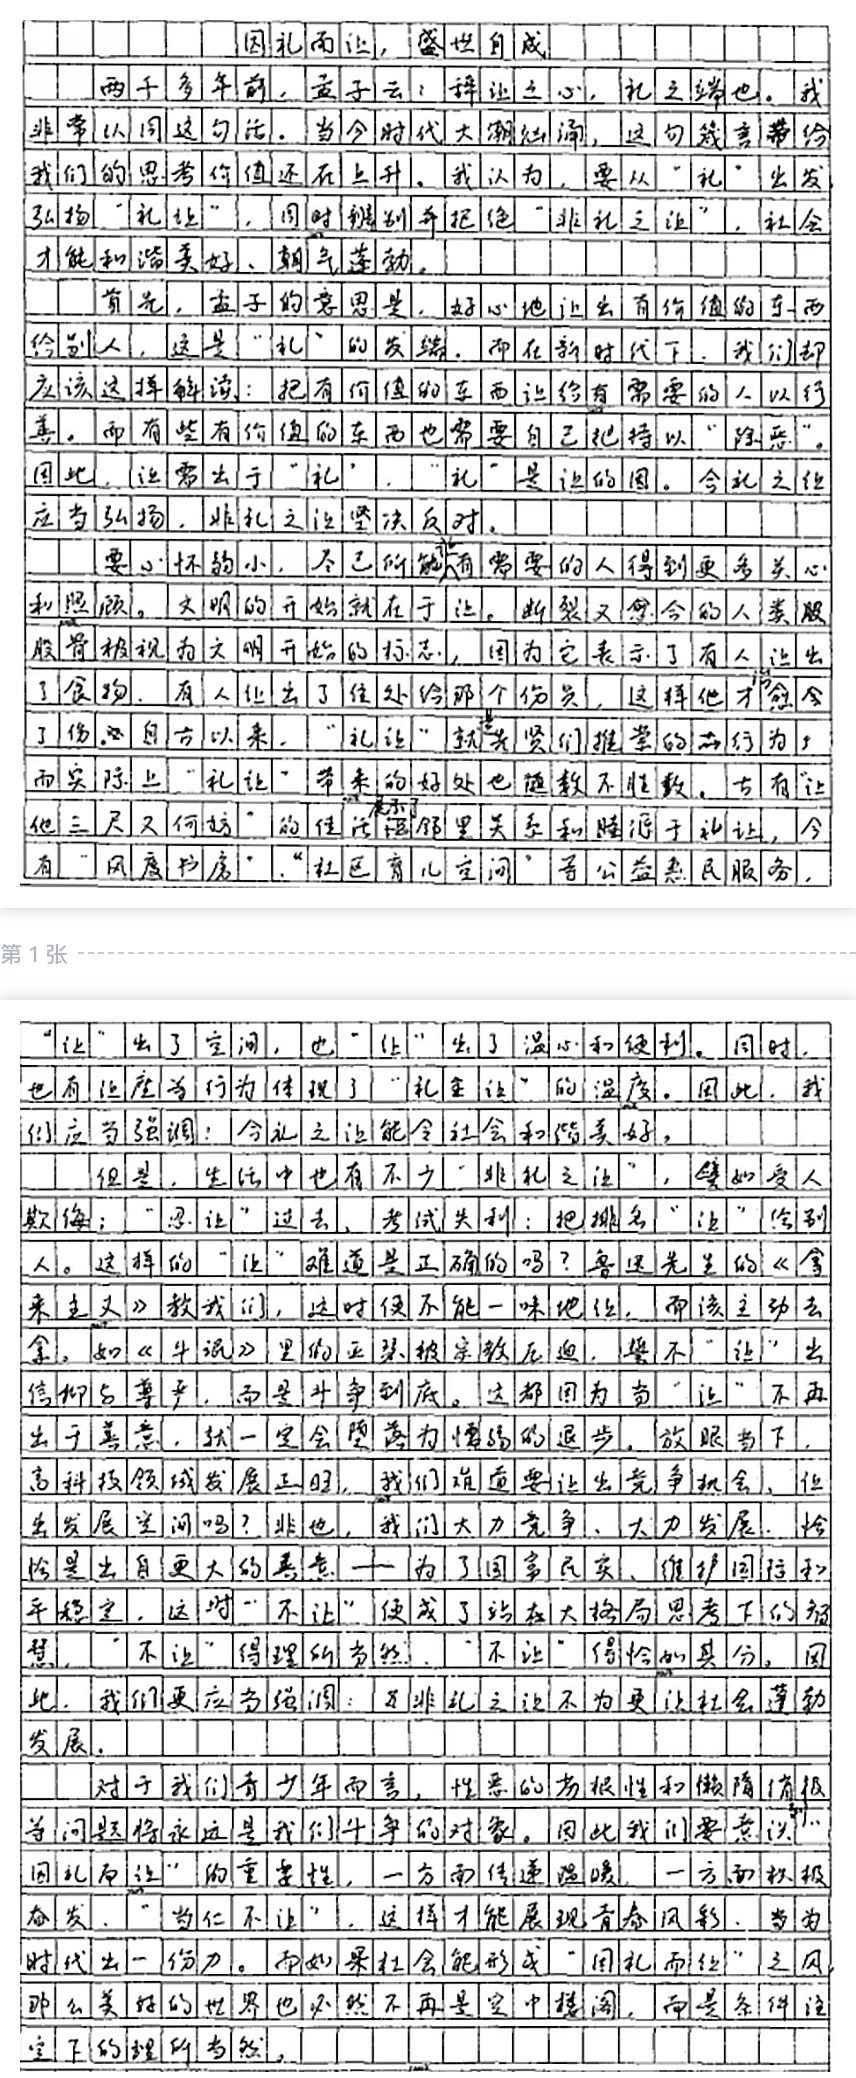 因礼而让，盛世自成
两千多年前，孟子云：辞让之心，礼之端也。我
非常认同这句话。当今时代大潮汹涌，这句箴言带给
我们的思考价值还在上升。我认为，要从“礼”出发，
弘扬“礼让”，同时辨别并拒绝“非礼之让”，社会
才能和谐美好、朝气蓬勃。
首先，孟子的意思是，好心地让出有价值的东西
给别人，这是“礼”的发端。而在新时代下，我们却
应该这样解读：把有价值的东西让给有需要的人以行
善。而有些有价值的东西也需要自己把持以“除恶”。
因此，让需出于“礼”，“礼”是让的因。合礼之让
应当弘扬，非礼之让坚决反对。
要心怀弱小，尽己所能让有需要的人得到更多关心
和照顾。文明的开始就在于让。断裂又愈合的人类股
股骨被视为文明开始的标志，因为它表示了有人让出
了食物、有人让出了住处给那个伤员，这样他才能愈合
了伤。自古以来，“礼让”就是先贤们推崇的行为，
而实际上“礼让”带来的好处也随数不胜数。古有“让
他三尺又何妨”的佳话展示了邻里关系和睦源于礼让，今
有“风度书房”、“社区育儿空间”等公益惠民服务，
第 1 张
“让”出了空间，也“让”出了温心和便利。同时，
也有让座等行为体现了“礼让”的温度。因此，我
们应当强调：合礼之让能令社会和谐美好。
但是，生活中也有不少“非礼之让”，譬如受人
欺侮；“忍让”过去、考试失利：把排名“让”给别
人。这样的“让”难道是正确的吗？鲁迅先生的《拿
来主义》教我们，这时便不能一味地让，而该主动去
拿。如《牛虻》里的亚瑟被宗教压迫，誓不“让”出
信仰与尊严，而是斗争到底。这都因为当“让”不再
出于善意，就一定会堕落为懦弱的退步。放眼当下，
高科技领域发展正旺，我们难道要让出竞争机会、让
出发展空间吗？非也，我们大力竞争、大力发展，恰
恰是出自更大的善意——为了国富民实、维护国际和
平稳定，这时“不让”便成了站在大格局思考下的智
慧，“不让”得理所当然，“不让”得恰如其分。因
此，我们更应当强调：非礼之让不为更让社会蓬勃
发展。
对于我们青少年而言，性恶的劣根性和懒惰消极
等问题将永远是我们斗争的对象。因此我们要意识到“
因礼而让”的重要性，一方面传递温暖，一方面积极
奋发，“当仁不让”，这样才能展现青春风彩，当为
时代出一份力。而如果社会能形成“因礼而让”之风，
那么美好的世界也必然不再是空中楼阁，而是条件注
定下的理所当然。